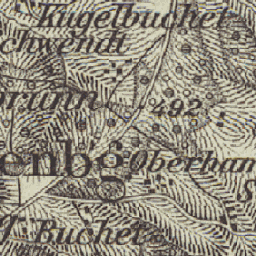 Kugelbuchet
chwendt
brunn
492
enbg
Oberhan
T. Buchet
S